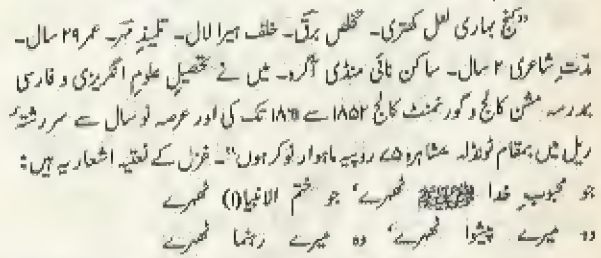 "کنج بہاری لعل کھتری۔ تخلص برق۔ خلف ہیرا لال۔ تلمیذ مہر۔ عمر ۲۹ سال۔
مدّت شاعری ۲ سال۔ ساکن نائی منڈی آگرہ۔ میں نے تحصیل علوم انگریزی و فارسی
بمدرسہ مشن کالج و گورنمنٹ کالج ۱۸۵۲ سے تک کی اور عرصہ نو سال سے سر رشتۂ
ریل میں بمقام ٹونڈلہ مشاہرہ روپیہ ماہوار نوکر ہوں"۔ غزل کے نعتیہ اشعار یہ ہیں:
جو محبوبِ خدا ﷺ ٹھہرے' جو ختم الانبیا(۱) ٹھہرے
وہ میرے پیشوا ٹھہرے' وہ میرے رہنما ٹھہرے